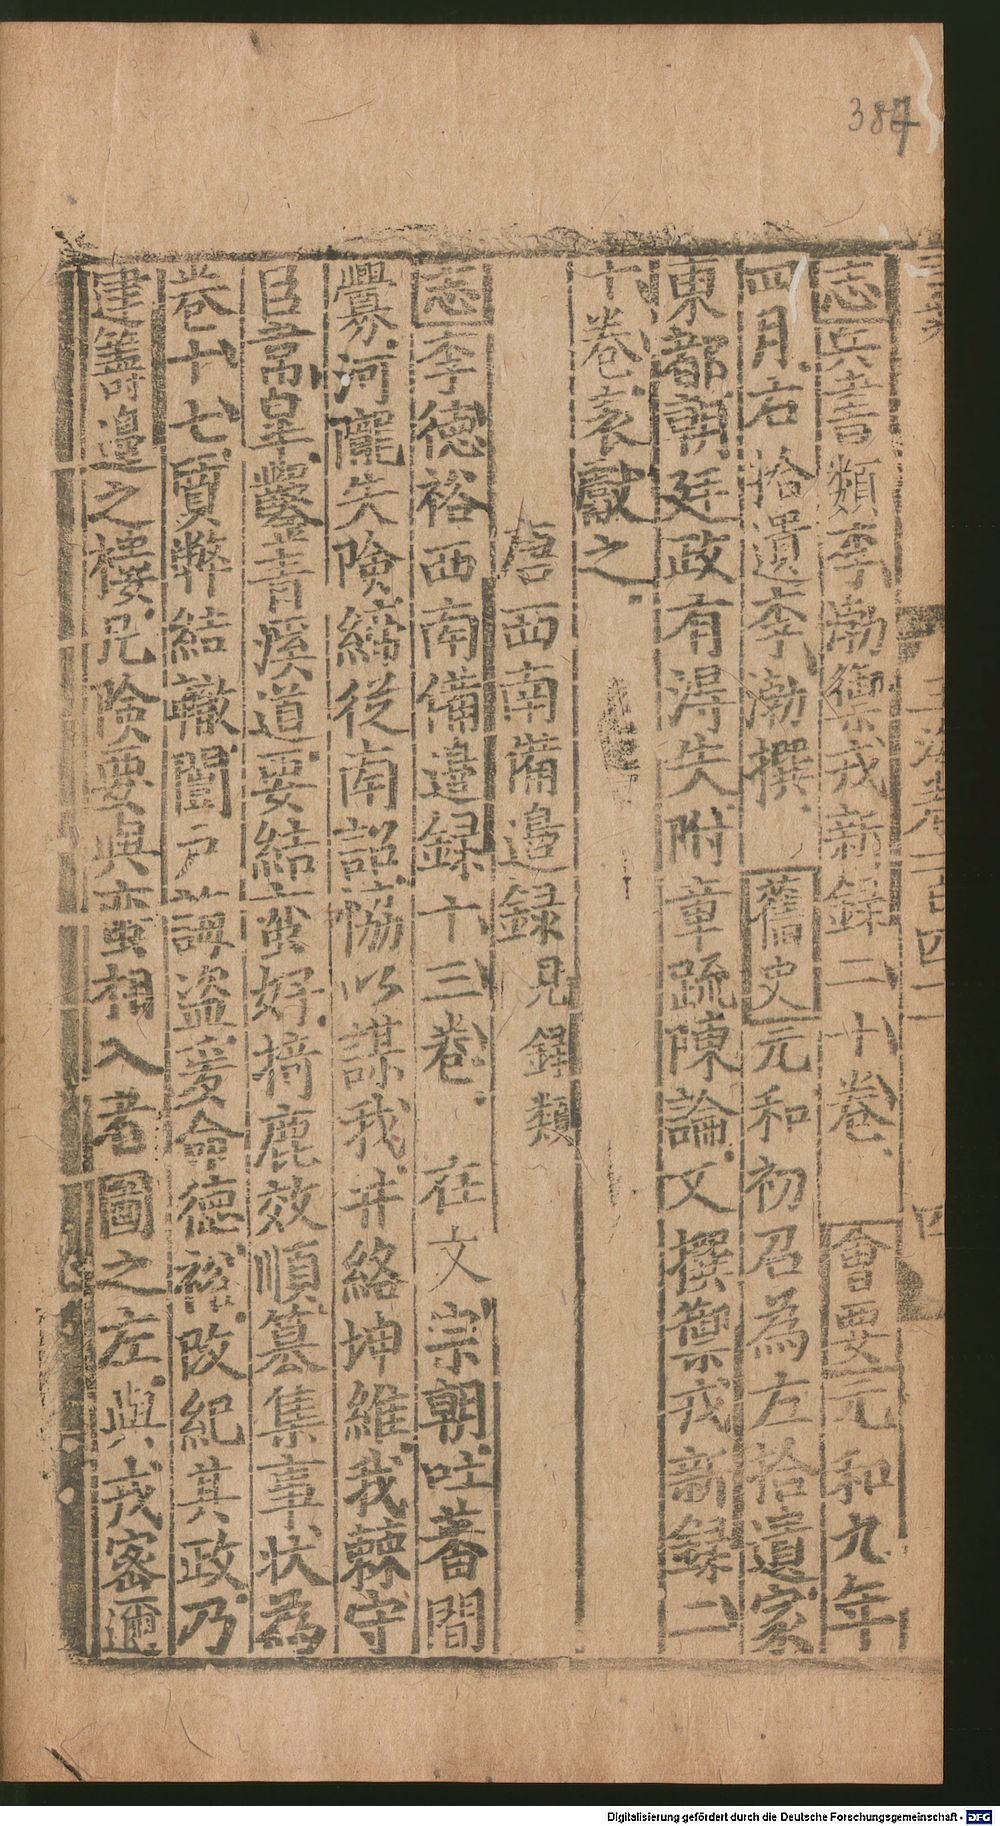 387
玉海卷一百四十一 四
志兵書類李渤禦戎新録二十卷會要元和九年
四月右拾遺李渤撰舊史元和初召為左拾遺家
東都朝廷政有得失附章疏陳論又撰禦戎新録二
十卷表獻之
唐西南備邊録見錄類
志李德裕西南備邊録十三卷在文宗朝吐蕃間
釁河隴失險緣從南詔協以謀我井絡坤維我棘守
臣韋皋鑿青溪道要結蠻好掎鹿效順纂集事狀為
卷十七質弊結轍闔戶誨盜爰命德裕改紀其政乃
建籌邊之樓凡險要與蠻相入者圖之左與戎密邇
Digitalisierung gefördert durch die Deutsche Forschungsgemeinschaft - DFG